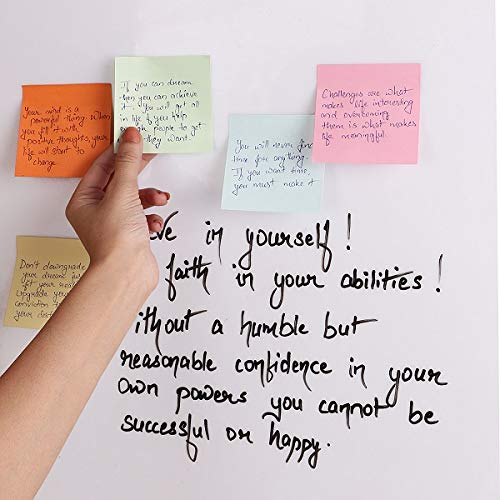 Your mind is a
powerful thing. when
you fill it with
positive thoughts, your
life will start to
change
If you can dream
then you can achieve
it. You will get all
in life if you help
people to get
they want.
You will never find
time for anything.
If you want time,
you must make it
Challenges are what
makes life interesting
and overcoming
them is what makes
life meaningful.
Don't downgrade
your dream
your
upgrade your
conviction
your
ve in yourself!
faith in your abilities!
ithout a humble but
reasonable confidence in your
own powers you cannot be
successful or happy.